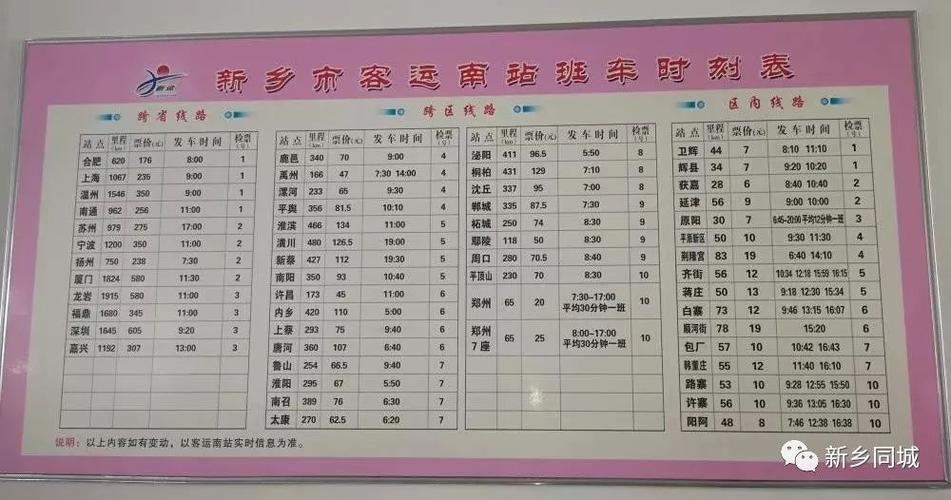 新乡市客运南站班车时刻表
跨省线路
站点 里程(km) 票价(元) 发车时间 检票(号)
合肥 620 176 8:00 1
上海 1067 235 9:00 1
温州 1546 350 9:00 1
南通 962 256 11:00 1
苏州 979 275 17:00 2
宁波 1200 350 11:00 2
扬州 750 238 7:30 2
厦门 1824 580 11:30 2
龙岩 1915 580 11:00 3
福鼎 1680 345 11:00 3
深圳 1645 605 9:20 3
嘉兴 1192 307 13:00 3
跨区线路
站点 里程(km) 票价(元) 发车时间 检票(号)
鹿邑 340 70 9:00 4
禹州 166 47 7:30 14:00 4
漯河 233 65 9:30 4
平舆 356 81.5 10:10 4
淮滨 466 134 11:00 5
潢川 480 126.5 19:00 5
新蔡 427 112 19:30 5
南阳 350 93 10:40 5
许昌 173 45 11:00 6
内乡 420 110 5:00 6
上蔡 293 75 9:40 6
唐河 360 107 6:40 6
鲁山 254 66.5 9:40 7
淮阳 295 67 5:50 7
南召 389 76 6:30 7
太康 270 62.5 6:20 7
站点 里程(km) 票价(元) 发车时间 检票(号)
泌阳 411 96.5 5:50 8
桐柏 431 129 7:10 8
沈丘 337 95 7:00 8
郸城 335 87.5 7:30 9
柘城 250 74 8:30 9
鄢陵 118 50 8:30 9
周口 280 70.5 8:40 9
平顶山 230 70 8:30 10
郑州 65 20 7:30-17:00 平均30分钟一班 10
郑州7座 65 25 8:00-17:00 平均30分钟一班 10
区内线路
站点 里程(km) 票价(元) 发车时间 检票(号)
卫辉 44 7 8:10 11:10 1
辉县 34 7 9:20 10:20 1
获嘉 28 6 8:40 10:40 2
延津 56 9 9:00 10:00 2
原阳 30 7 6:45-20:00 平均12分钟一班 3
平原新区 50 10 9:30 11:30 4
荆隆宫 83 19 6:40 14:10 4
齐街 56 12 10:34 12:18 15:59 16:15 5
蒋庄 50 13 9:18 12:30 15:34 5
白寨 73 12 9:46 13:15 16:07 6
顺河街 78 19 15:20 6
包厂 57 10 10:42 16:43 7
韩董庄 55 12 11:40 16:10 7
路寨 53 10 9:28 12:55 15:50 10
许寨 56 10 9:36 13:05 16:30 10
阳阿 48 8 7:46 12:38 16:38 10
说明：以上内容如有变动，以客运南站实时信息为准。
新乡同城